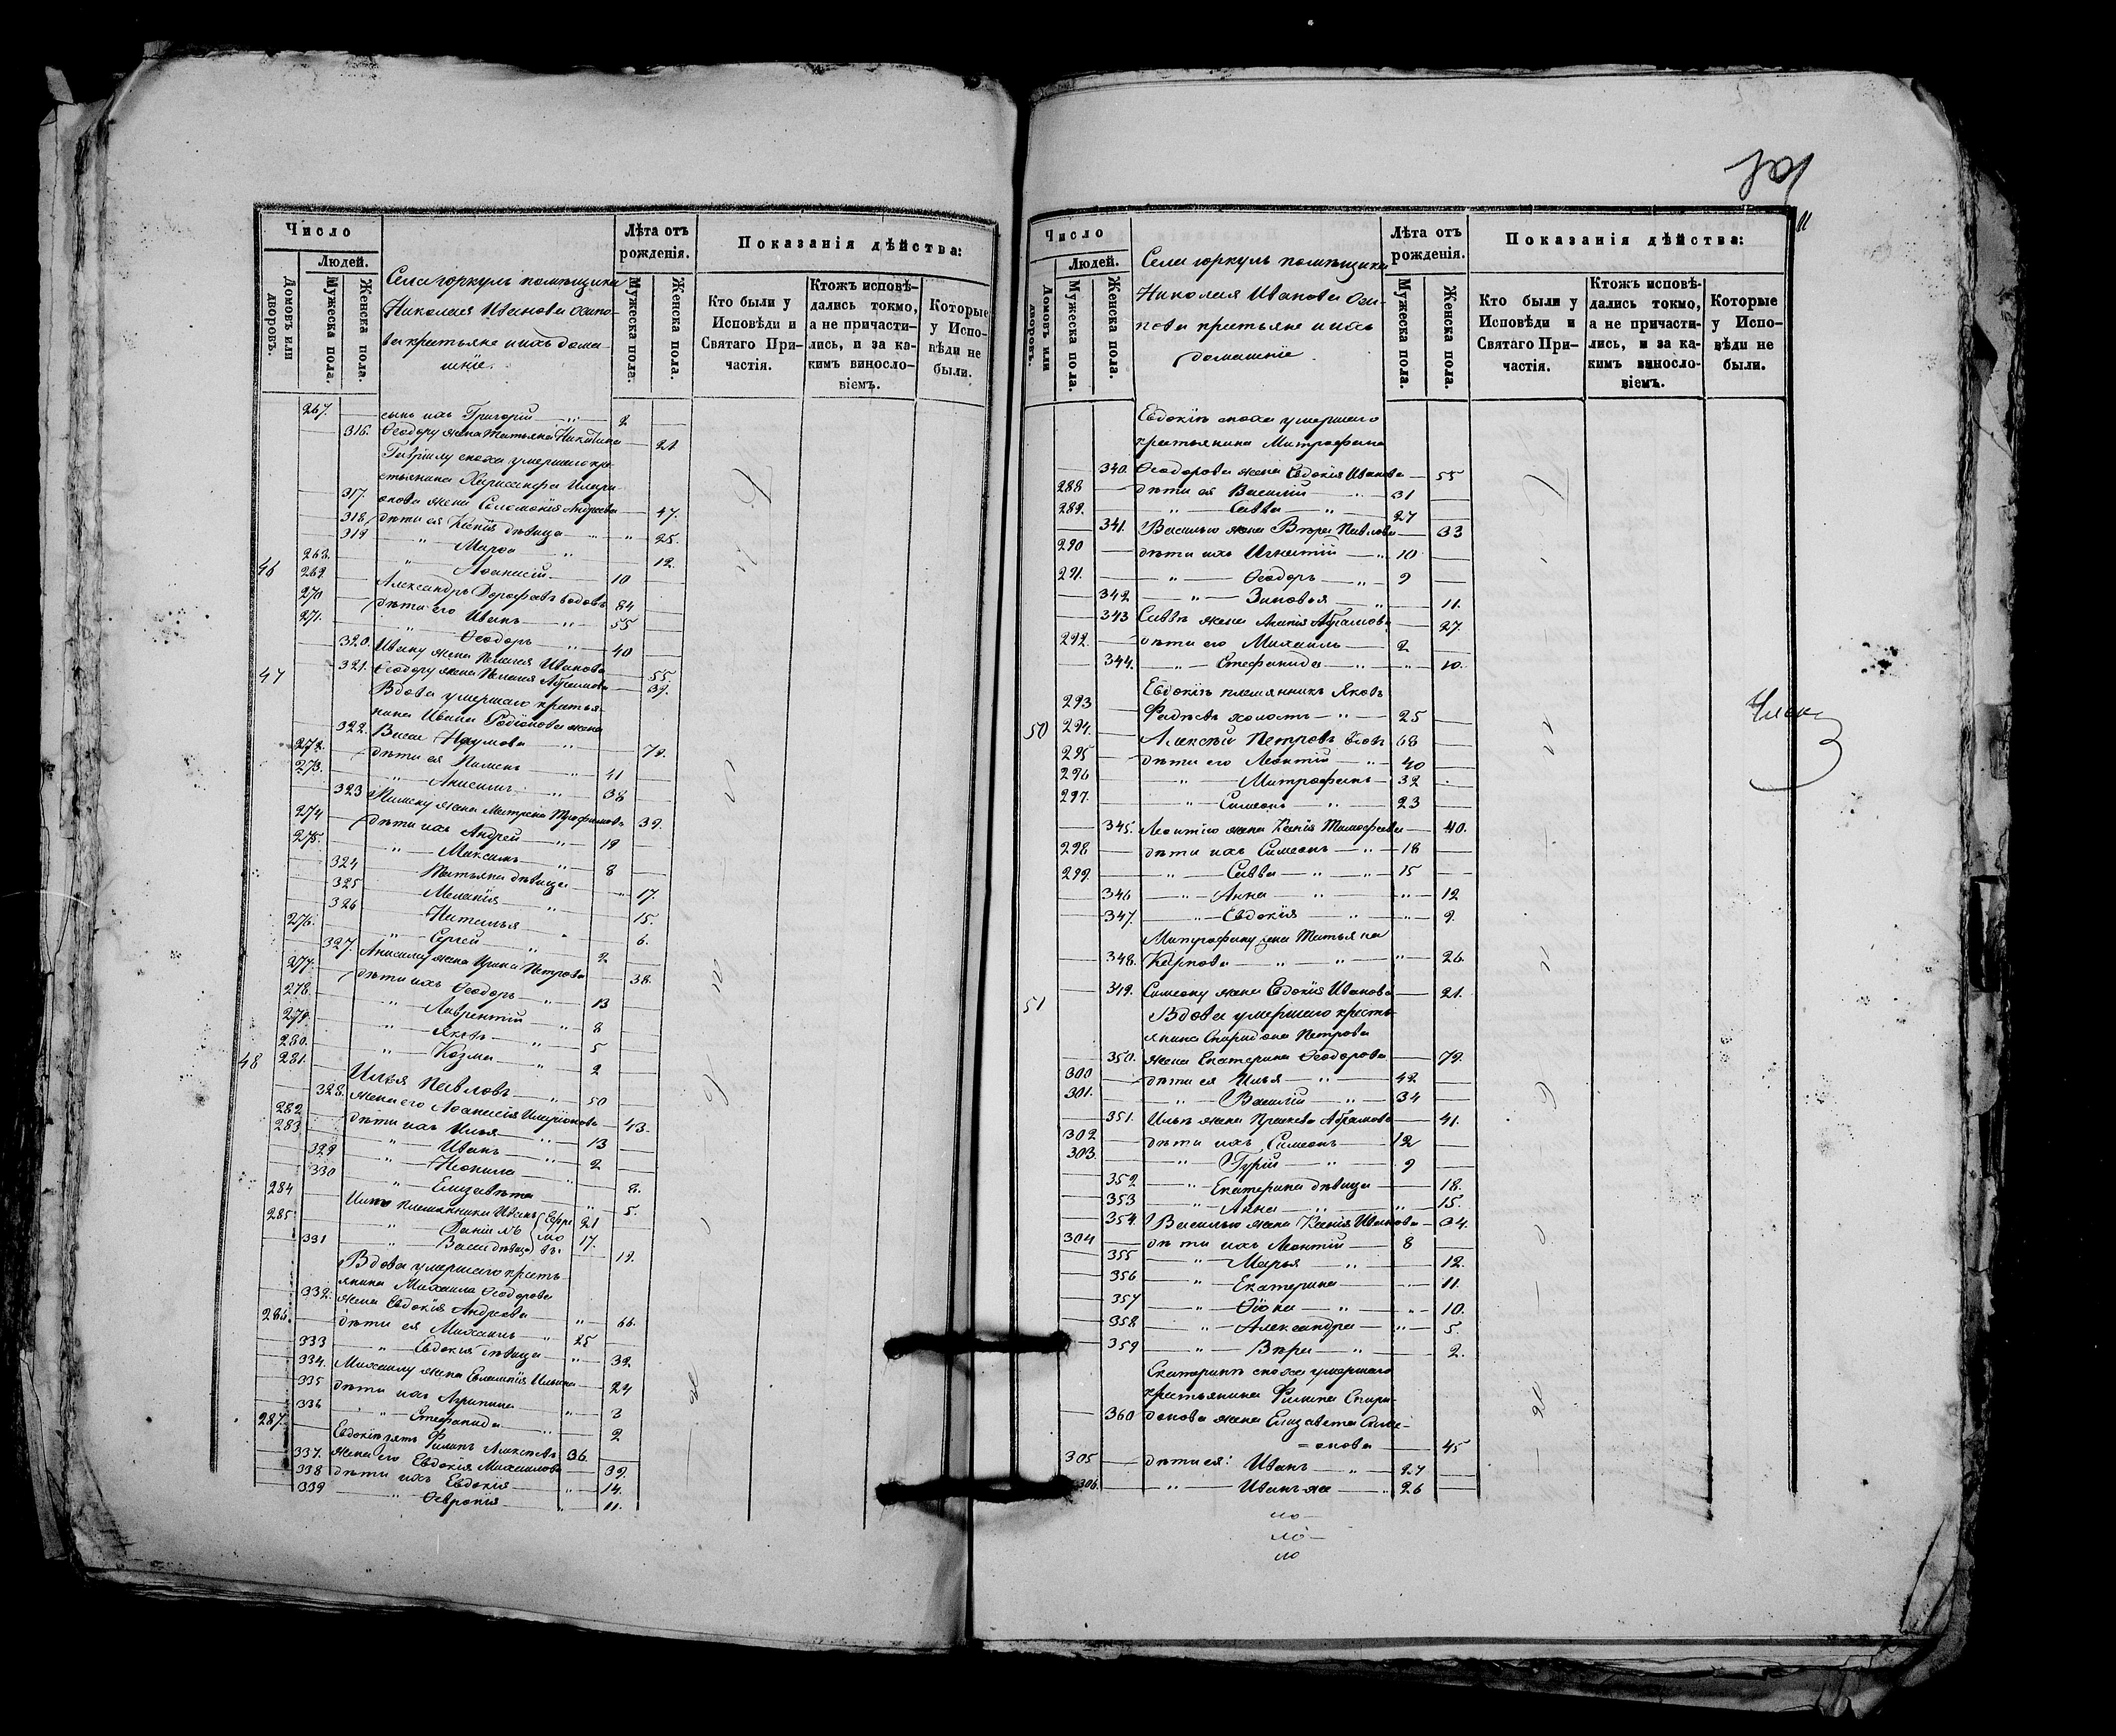 Число
Людей.
Домовъ или дворовъ.
Мужеска пола.
Женска пола.
Села горкуль помѣщика
Николая Иванова осипо-
ва крестьяне и ихъ дома-
шніе.
Лѣта отъ рожденія.
Мужеска пола.
Женска пола.
Показанія дѣйства:
Кто были у Исповѣди и Святаго Причастія.
Ктожъ исповѣдались токмо, а не причастились, и за какимъ винословіемъ.
Которые у Исповѣди не были.
267. сынъ ихъ Григорій — „ — 2
316. Ѳеодору жена Татьяна Никитина — 21
Гавріилу сноха умершаго кре-
стьянина Хрисанфа Илари-
317. онова жена Соломонія Андреева — 47.
318 дѣти ея Ксенія дѣвица — „ 25.
319 „ Марѳа — „ 12.
268. „ Аѳанасій — 10
46 269. Александръ Дорофеевъ 84
270 дѣти его Иванъ — „ — 55
271. „ Ѳеодоръ — „ — 40
320. Ивану жена Пелагея Иванова — 55.
321. Ѳеодору жена Пелагея Абрамова — 39.
47 Вдова умершаго крестья-
нина Ивана Родіонова жена
322. Васса Наумова — „ — 72.
272. дѣти ея Пименъ — „ — 41
273. „ Анисимъ — „ — 38
323 Пимену жена Матрена Трофимова 39.
274 дѣти ихъ Андрей — „ — 19
275. „ Максимъ — „ — 8
324 Татьяна дѣвица — „ 17.
325 Меланія — „ — 15.
326 Наталья — 6.
276. „ Сергей — „ — 2
327. Анисиму жена Ирина Петрова — 38.
277. дѣти ихъ Ѳеодоръ — „ — 13
278. „ Лаврентій — „ — 8
279. „ Яковъ — „ — 5
280. „ Козма — „ — 2
48 281. Илья Павловъ — „ — 50
328. жена его Аѳанасія Иларіонова — 43.
282 дѣти ихъ Илья — „ — 13
283 „ Иванъ — „ — 2
329 „ Неонила — „ 8.
330 „ Елизавета — „ 5.
284 Ильѣ племянники Иванъ Ефре 21
285. „ Даніилъ мо 17.
331 „ Васса дѣвица вы 19.
Вдова умершаго кресть-
янина Михаила Ѳеодорова
332. жена Евдокія Андреева — „ 66.
286. дѣти ея Михаилъ — „ 25
333 „ Евдокія дѣвица — „ 32
334. Михаилу жена Евлампія Ильина — 24
335 дѣти ихъ Агрипина — „ 3
336 „ Стефанида — 2
287. Евдокіи зять Филипъ Алексѣевъ 36.
337. жена его Евдокія Михайлова — 39.
338 дѣти ихъ Евдокія — 14.
339 „ Ѳевронія — „ 11.
Число
Людей.
Домовъ или дворовъ.
Мужеска пола.
Женска пола.
Села горкуль помѣщика
Николая Иванова Оси-
пова крестьяне и ихъ
домашніе.
Лѣта отъ рожденія.
Мужеска пола.
Женска пола.
Показанія дѣйства:
Кто были у Исповѣди и Святаго Причастія.
Ктожъ исповѣдались токмо, а не причастились, и за какимъ винословіемъ.
Которые у Исповѣди не были.
11
Евдокіѣ сноха умершаго
крестьянина Митрофана
340. Ѳеодорова жена Евдокія Иванова — 55
288 дѣти ея Василій — „ — 31
289. „ Савва — „ 27
341. Василью жена Вѣра Павлова — 33
290 дѣти ихъ Игнатій — „ 10
291. „ Ѳеодоръ — „ — 9
342 „ Зиновья — „ — 11.
343 Саввѣ жена Ксенія Абрамова — 27.
292. дѣти его Михаилъ — 2
344. „ Стефанида — „ — „ 10.
Евдокіѣ племянникъ Яковъ
293 Фадѣевъ холостъ — „ — 25
50 294. Алексѣй Петровъ 68
295 дѣти его Леонтій — „ 40
296 „ Митрофанъ — 32
297. „ Симеонъ — „ — 23
345. Леонтію жена Ксенія Тимофеева — 40.
298 дѣти ихъ Симеонъ — „ — 18
299. „ Савва — „ — „ 15
346 „ Анна „ — „ 12
347. „ Евдокія — „ — „ 9.
Митрофану жена Татьяна
348. Карпова — „ — „ — „ 26.
349. Симеону жена Евдокія Иванова — 21.
51 Вдова умершаго кресть-
янина Спиридона Петрова
350. жена Екатерина Ѳеодорова — 72.
300 дѣти ея Илья — „ — 42
301. „ Василій — „ — 34
351. Ильѣ жена Прасковья Абрамова — 41.
302 дѣти ихъ Симеонъ — 12
303. „ Гурій — „ — 9
352 „ Екатерина дѣвица — 18.
353 „ Анна „ „ 15.
354. Василью жена Ксенія Иванова — 34.
304 дѣти ихъ Леонтій — 8
355 „ Марья — „ — 12.
356 „ Екатерина — „ 11.
357 „ Ѳіона — „ — „ 10.
358 „ Александра — „ 5.
359 „ Вѣра — „ 2.
Екатеринѣ сноха умершаго
крестьянина Филипа Спири-
360 донова жена Елизавета Симе-
= онова — 45
305 дѣти ея: Иванъ — „ — 27
306. „ Иванъ же — „ 26